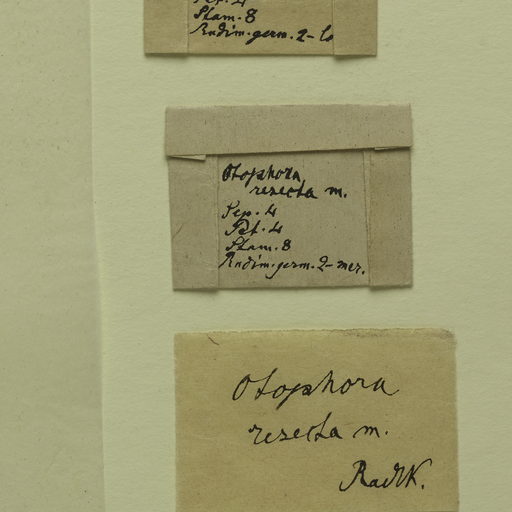 Stam. 8
Rudim. germ. 2-lo
Otophora
resecta m.
Sep. 4
Pet. 4
Stam. 8
Rudim. germ. 2-mer.
Otophora
resecta m.
Radlk.